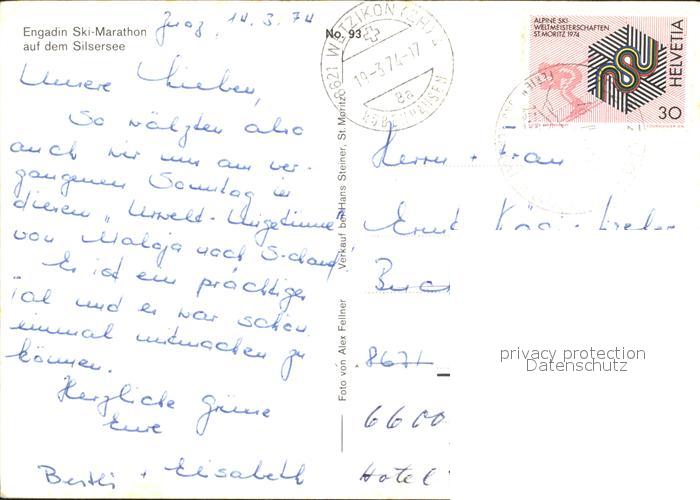 Engadin Ski-Marathon
auf dem Silsersee
Zuoz, 14.3.74
Unsere Lieben,
So wälzten also
auch wir uns am ver-
gangenen Sonntag in
diesem "Urwelt-Ungetüm"
von Maloja nach S-chanf.
Es ist ein prächtiger
und es war schön
einmal mitmachen zu
können.
Herzliche Grüsse
Eure
Berthi + Elisabeth
No. 93
8621 WETZIKON (ZH) 2
19-3.74-17
8a
ROBENHAUSEN
Verkauf bei Hans Steiner, St. Moritz
Foto von Alex Fellner
ALPINE SKI-
WELTMEISTERSCHAFTEN
ST. MORITZ 1974
HELVETIA
30
Herrn + Frau
Ernst
8671
6600
Hotel
privacy protection
Datenschutz